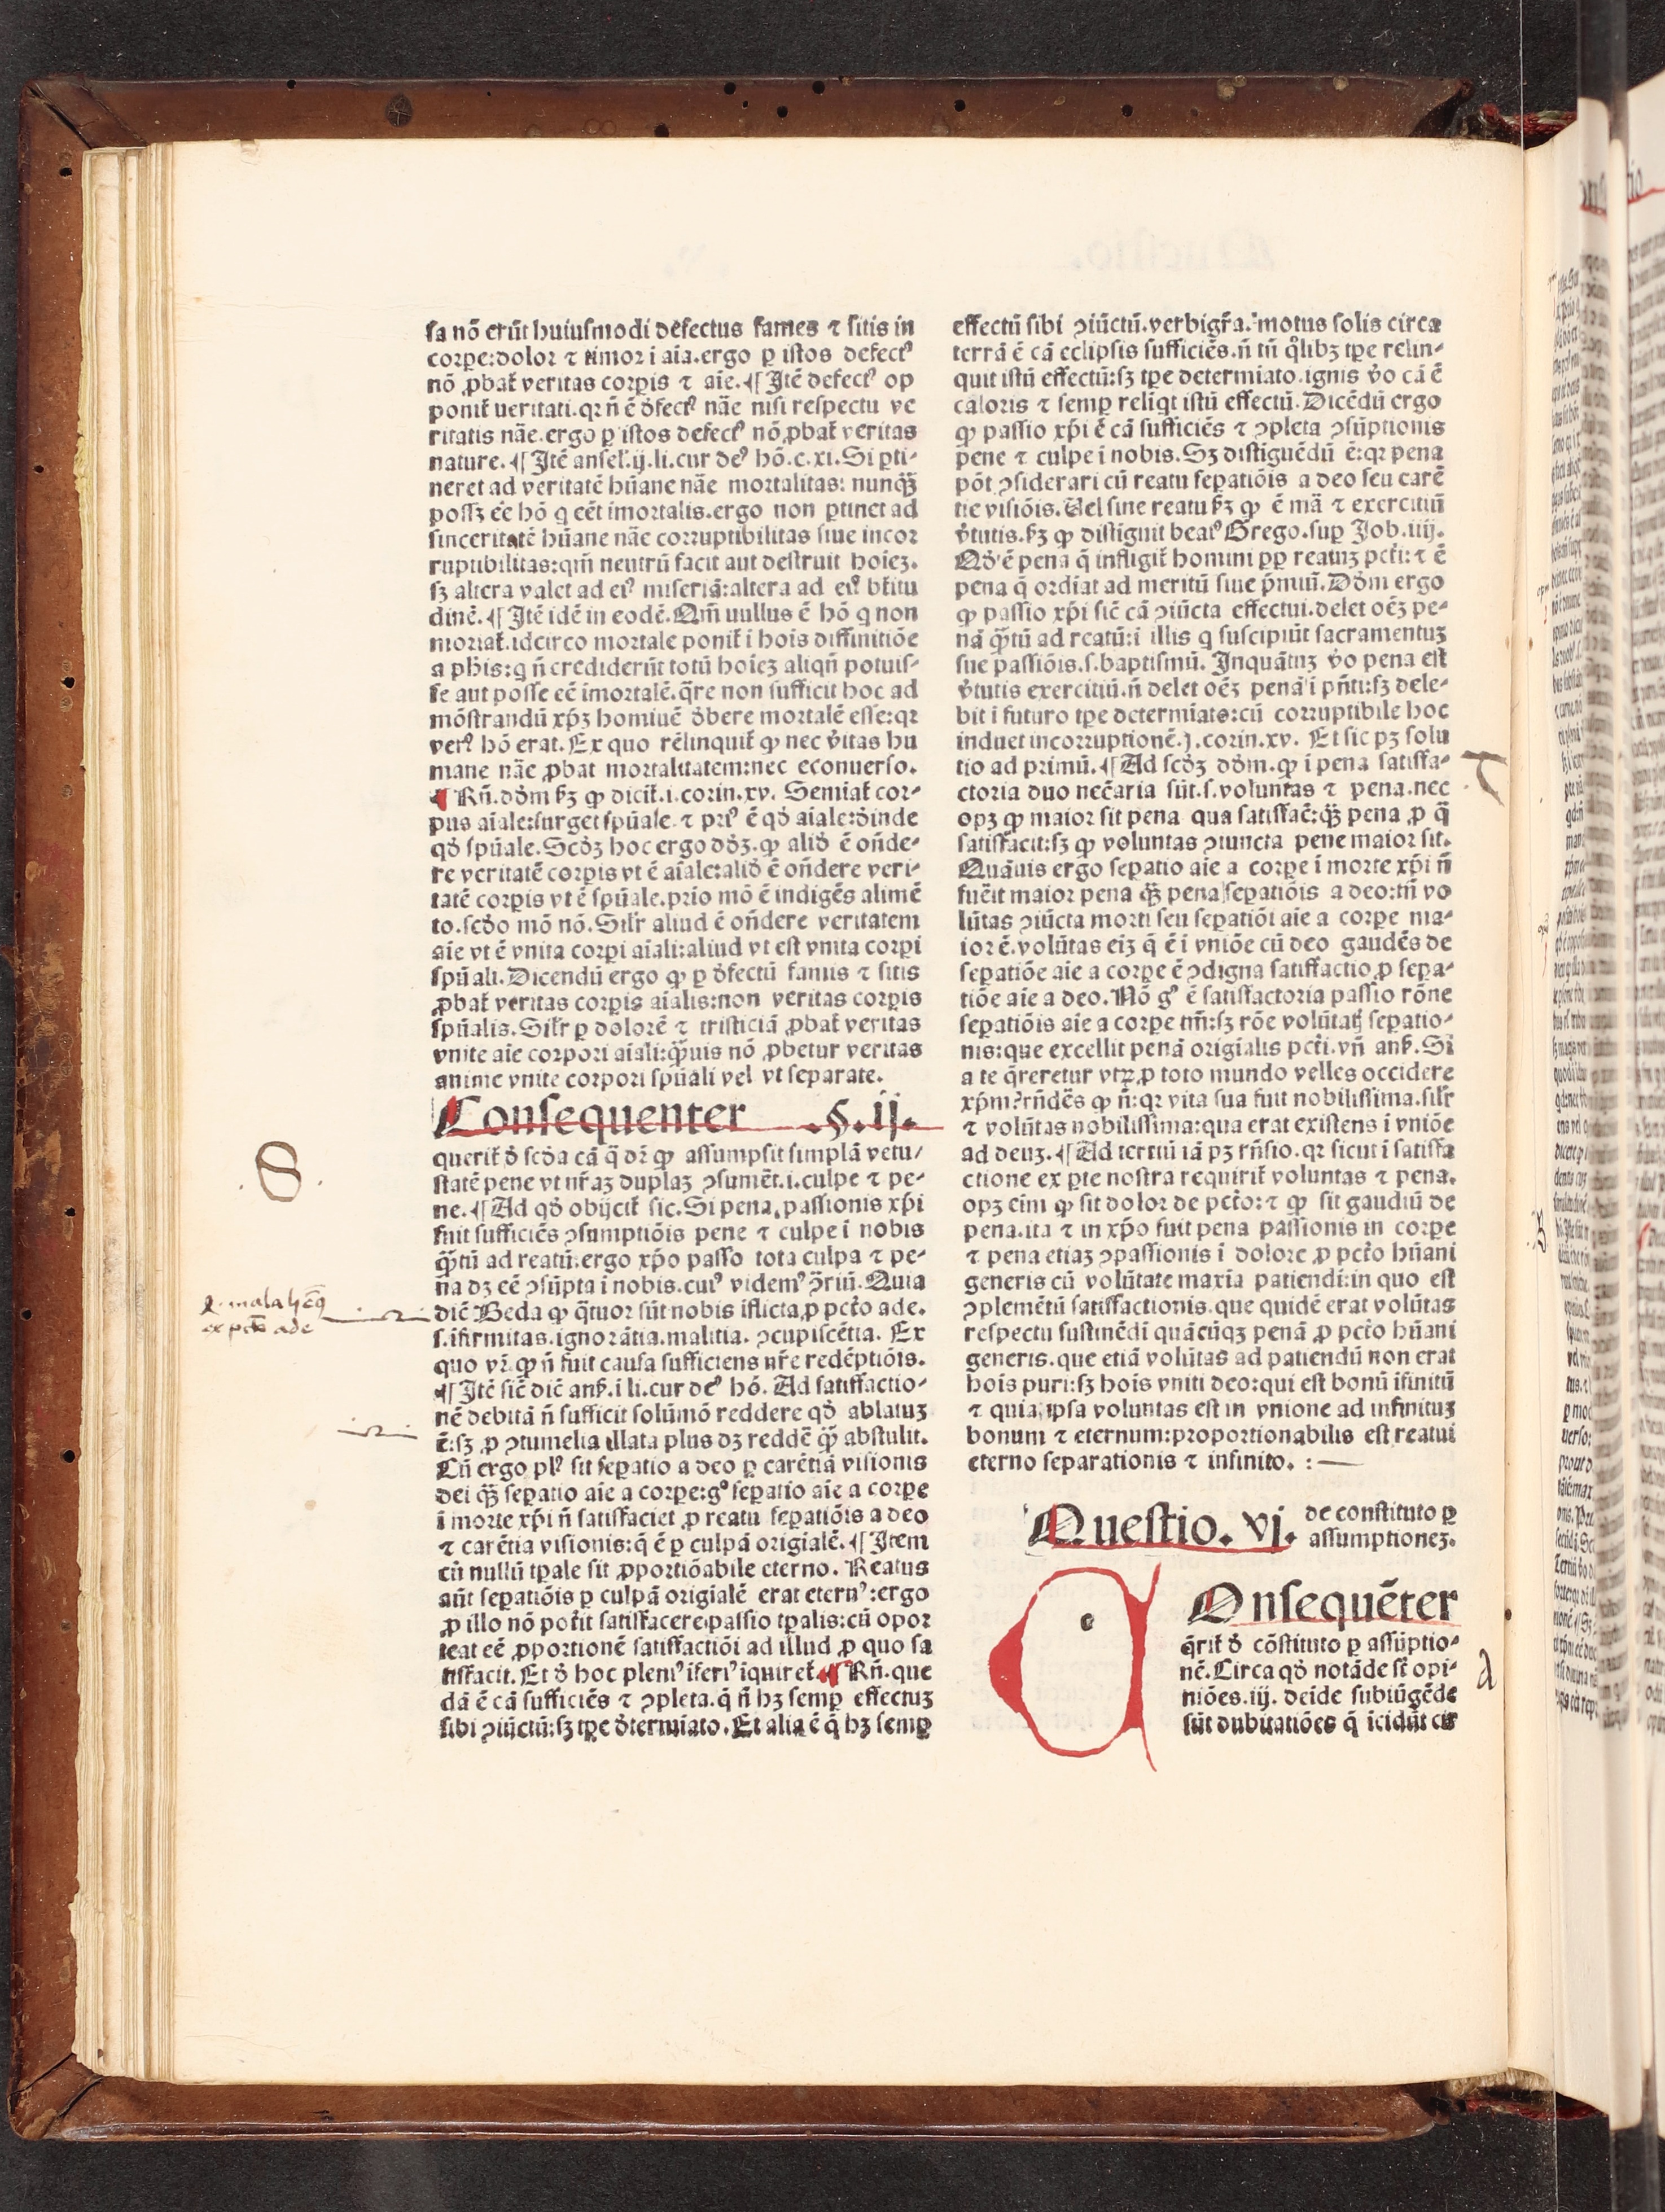 sa nō erūt huiusmodi defectus fames ⁊ sitis in
corꝑe:dolor ⁊ timor i aīa.ergo ꝑ istos defectꝰ
nō ꝓbat̄ veritas corꝑis ⁊ aīe.¶ Itē defectꝰ op
ponit̄ ueritati.qꝛ n̄ ē dͦfectꝰ nāe nisi respectu ve
ritatis nāe.ergo ꝑ istos defectꝰ nō ꝓbat̄ veritas
nature.¶ Itē ansel̄.ij.li.cur deꝰ hō.c.xi.Si ꝑti-
neret ad veritatē hūane nāe mortalitas: nunqͣꝫ
possꝫ eē hō q eēt imortalis.ergo non ꝑtinet ad
sinceritatē hūane nāe corruptibilitas siue incor
ruptibilitas:qm̄ neutrū facit aut destruit hoīeꝫ.
sꝫ altera valet ad eiꝰ miseriā:altera ad eiꝰ bt̄itu
dinē.¶ Itē idē in eodē.Qm̄ uullus ē hō q non
moriat̄.idcirco mortale ponit̄ i hoīs diffinitiōe
a ph̄is:q n̄ crediderūt totū hoīeꝫ aliqn̄ potuis-
se aut posse eē imortalē.q̄re non sufficit hoc ad
mōstrandū xp̄ꝫ homiuē dͦbere mortalē esse:qꝛ
verꝰ hō erat. Ex quo rēlinquit̄ ꝙ nec v̓itas hu
mane nāe ꝓbat mortalitatem:nec econuerso.
¶ Rn̄.dōm ẜꝫ ꝙ dicit̄.i.corin.xv. Semīat̄ cor-
pus aīale:surget spūale ⁊ priꝰ ē qđ aīale:dͦinde
qđ spūale.Scđꝫ hoc ergo dōꝫ.ꝙ aliđ ē on̄de-
re veritatē corꝑis vt ē aīale:aliđ ē on̄dere veri-
tatē corꝑis vt ē spūale.prīo mō ē indigēs alimē
to.scđo mō nō. Sil̄r aliud ē on̄dere veritatem
aīe vt ē vnita corꝑi aīali:aliud vt est vnita corꝑi
spūali.Dicendū ergo ꝙ ꝑ dͦfectū famis ⁊ sitis
ꝓbat̄ veritas corꝑis aīalis:non veritas corꝑis
spūalis. Sil̄r ꝑ dolorē ⁊ tristiciā ꝓbat̄ veritas
vnite aīe corpori aīali:qͣ̄uis nō ꝓbetur veritas
anime vnite corpori spūali vel vt separate.
Consequenter .§.ij.
querit̄ dͦ scđa cā q̄ dꝛ̄ ꝙ assumpsit simplā vetu/
statē pene vt nr̄aꝫ duplaꝫ ↄsumēt.i.culpe ⁊ pe-
ne.¶ Ad qđ obijcit̄ sic. Si pena passionis xp̄i
fuit sufficiēs ↄsumptiōis pene ⁊ culpe i nobis
qͣ̄tū ad reatū.ergo xp̄o passo tota culpa ⁊ pe-
na dꝫ eē ↄsūpta i nobis.cuiꝰ videmꝰ ↄ̄riū. Quia
diē Beda ꝙ q̄tuor sūt nobis iflicta ꝓ pctō ade.
s.ifirmitas.ignorātia.malitia. ↄcupiscētia. Ex
quo vꝛ̄.ꝙ n̄ fuit causa sufficiens nr̄e redēptiōis.
¶ Itē sic̄ diē anẜ.i li.cur deꝰ hō. Ad satisfactio-
nē debitā n̄ sufficit solūmō reddere qđ ablatuꝫ
ē:sꝫ ꝓ ↄtumelia illata plus dꝫ reddē qͣ̄ abstulit.
Cū ergo plꝰ sit seꝑatio a deo ꝑ carētiā visionis
dei qͣꝫ seꝑatio aīe a corꝑe:gͦ seꝑatio aīe a corꝑe
i morte xp̄i n̄ satisfaciet ꝓ reatu seꝑatiōis a deo
⁊ carētia visionis:q̄ ē ꝑ culpā origialē.¶ Item
cū nullū tꝑale sit ꝓportiōabile eterno. Reatus
aūt seꝑatiōis ꝑ culpā origialē erat eternꝰ:ergo
ꝓ illo nō potīt satisfacere passio tꝑalis:cū opor
teat eē ꝓportionē satisfactiōi ad illud ꝓ quo sa
tisfacit. Et dͦ hoc pleniꝰ iferiꝰ īquiret̄.¶ Rn̄.que
dā ē cā sufficiēs ⁊ ↄpleta.q̄ n̄ hꝫ semꝑ effectuꝫ
sibi ↄiūctū:sꝫ tꝑe dͦtermiato. Et alia ē q̄ hꝫ semꝑ
effectū sibi ↄiūctū.verbigr̄a.motus solis circa
terrā ē cā eclipsis sufficiēs.n̄ tn̄ qͦlibꝫ tꝑe relin-
quit istū effectū:sꝫ tꝑe determiato.ignis v̓o cā ē
caloris ⁊ semꝑ reliq̇t istū effectū. Dicēdū ergo
ꝙ passio xp̄i ē cā sufficiēs ⁊ ↄpleta ↄsūptionis
pene ⁊ culpe i nobis. Sꝫ distiguēdū ē:qꝛ pena
pōt ↄsiderari cū reatu seꝑatiōis a deo seu carē
tie visiōis. Uel sine reatu ẜꝫ ꝙ ē mā ⁊ exercitiū
v̓tutis.ẜꝫ ꝙ distiguit beatꝰ Grego.suꝑ Job.iiij.
Qđ ē pena q̄ infligit̄ homini ꝓp reatuꝫ pcti: ⁊ ē
pena q̄ ordīat ad meritū siue p̄miū. Dōm ergo
ꝙ passio xp̄i sic̄ cā ↄiūcta effectui.delet oēꝫ pe-
nā qͣ̄tū ad reatū:i illis q suscipiūt sacramentuꝫ
sue passiōis.s.baptismū. Inquātuꝫ v̓o pena est
v̓tutis exercitiū.n̄ delet oēꝫ penā i pn̄ti:sꝫ dele-
bit i futuro tꝑe determiato:cū corruptibile hoc
induet incorruptionē.j.corin.xv. Et sic pꝫ solu
tio ad primū.¶ Ad scđꝫ dōm.ꝙ i pena satisfa-
ctoria duo necēaria sūt.s.voluntas ⁊ pena.nec
opꝫ ꝙ maior sit pena qua satisfac̄:qͣꝫ pena ꝓ q̄
satisfacit:sꝫ ꝙ voluntas ↄiuncta pene maior sit.
Quāuis ergo sepatio aīe a corꝑe i morte xp̄i n̄
fuēit maior pena qͣꝫ pena seꝑatiōis a deo:tn̄ vo
lūtas ↄiūcta morti seu seꝑatiōi aīe a corꝑe ma-
ior ē.volūtas eiꝫ q̄ ē i vniōe cū deo gaudēs de
seꝑatiōe aīe a corꝑe ē ↄdigna satisfactio ꝓ seꝑa-
tiōe aīe a deo. Nō gͦ ē satisfactoria passio rōne
seꝑatiōis aīe a corꝑe tm̄:sꝫ rōe volūtatꝭ seꝑatio-
nis:que excellit penā origialis pcti.vn̄ anẜ. Si
a te q̄reretur vtꝝ ꝓ toto mundo velles occidere
xp̄m?rn̄dēs ꝙ n̄:qꝛ vita sua fuit nobilissima.sil̄r
⁊ volūtas nobilissima:qua erat existens i vniōe
ad deuꝫ.¶ Ad tertiū iā pꝫ rn̄sio.qꝛ sicut i satisfa
ctione ex ꝑte nostra requirit̄ voluntas ⁊ pena.
opꝫ eīm ꝙ sit dolor de pctō:⁊ ꝙ sit gaudiū de
pena.ita ⁊ in xp̄o fuit pena passionis in corꝑe
⁊ pena etiaꝫ ↄpassionis i dolore ꝓ pctō hūani
generis cū volūtate maxīa patiendi:in quo est
ↄplemētū satisfactionis.que quidē erat volūtas
respectu sustinēdi quācūqꝫ penā ꝓ pctō hūani
generis.que etiā volūtas ad patiendū non erat
hoīs puri:sꝫ hoīs vniti deo:qui est bonū ifinitū
⁊ quia ipsa voluntas est in vnione ad infinituꝫ
bonum ⁊ eternum:proportionabilis est reatui
eterno separationis ⁊ infinito. : —
Questio. vj. de constituto ꝑ
assumptioneꝫ.
C Onsequēter
q̄rit̄ dͦ cōstituto ꝑ assūptio-
nē.Circa qđ notāde sūt opi-
niōes.iij. deide subiūgēde
sūt dubitatiōes q̄ icidūt cir
.8.
mala
ex pctō ade